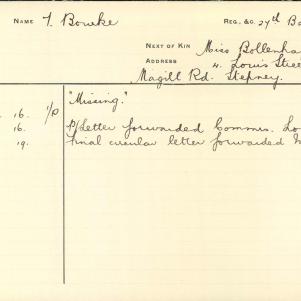 NAME T. Bourke REG. &C. 27th Ba
NEXT OF KIN Miss Bollenha
ADDRESS 4. Louis Stree
Magill Rd. Stepney.
. 16. 1/P "Missing."
16. P/Letter forwarded Commrs. Lo
19. Final circular letter forwarded